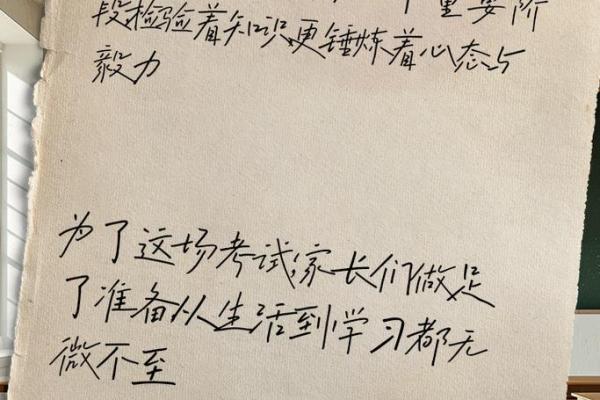 重要阶
段检验着知识,更锤炼着心态与
毅力
为了这场考试,家长们做足
了准备从生活到学习都无
微不至